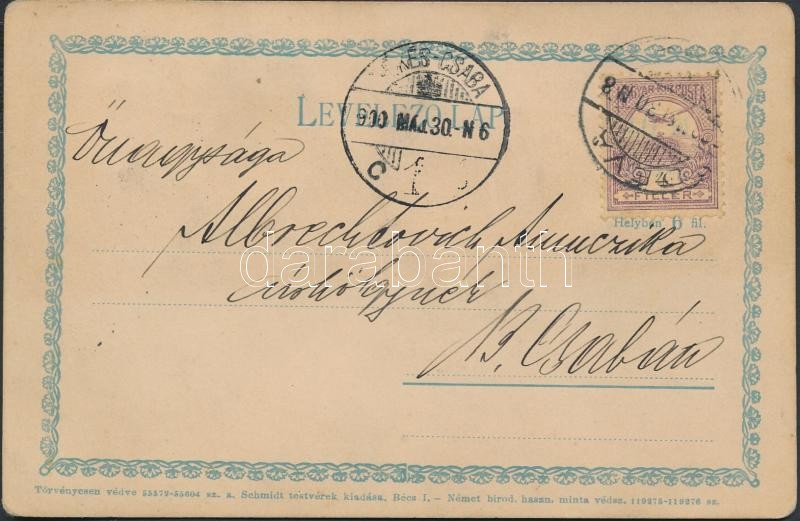 LEVELEZŐ-LAP
BÉKÉS CSABA
900 MÁJ. 30.-N 6
C 1
MAGYAR KIR. POSTA
FILLÉR
Helyben 5 fil.
Önagysága
Albrechtovich Annuczika
úrhölgynek
B. Csabán
darabanth
Törvényesen védve 55572-55604 sz. a. Schmidt testvérek kiadása, Bécs I. – Német birod. haszn. minta védsz. 119275-119276 sz.